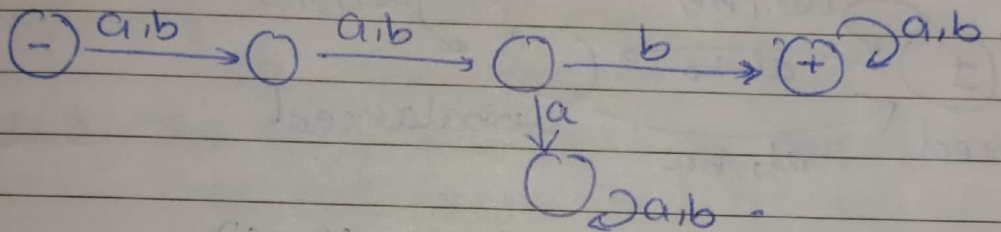 - a,b a,b b + a,b
a
a,b